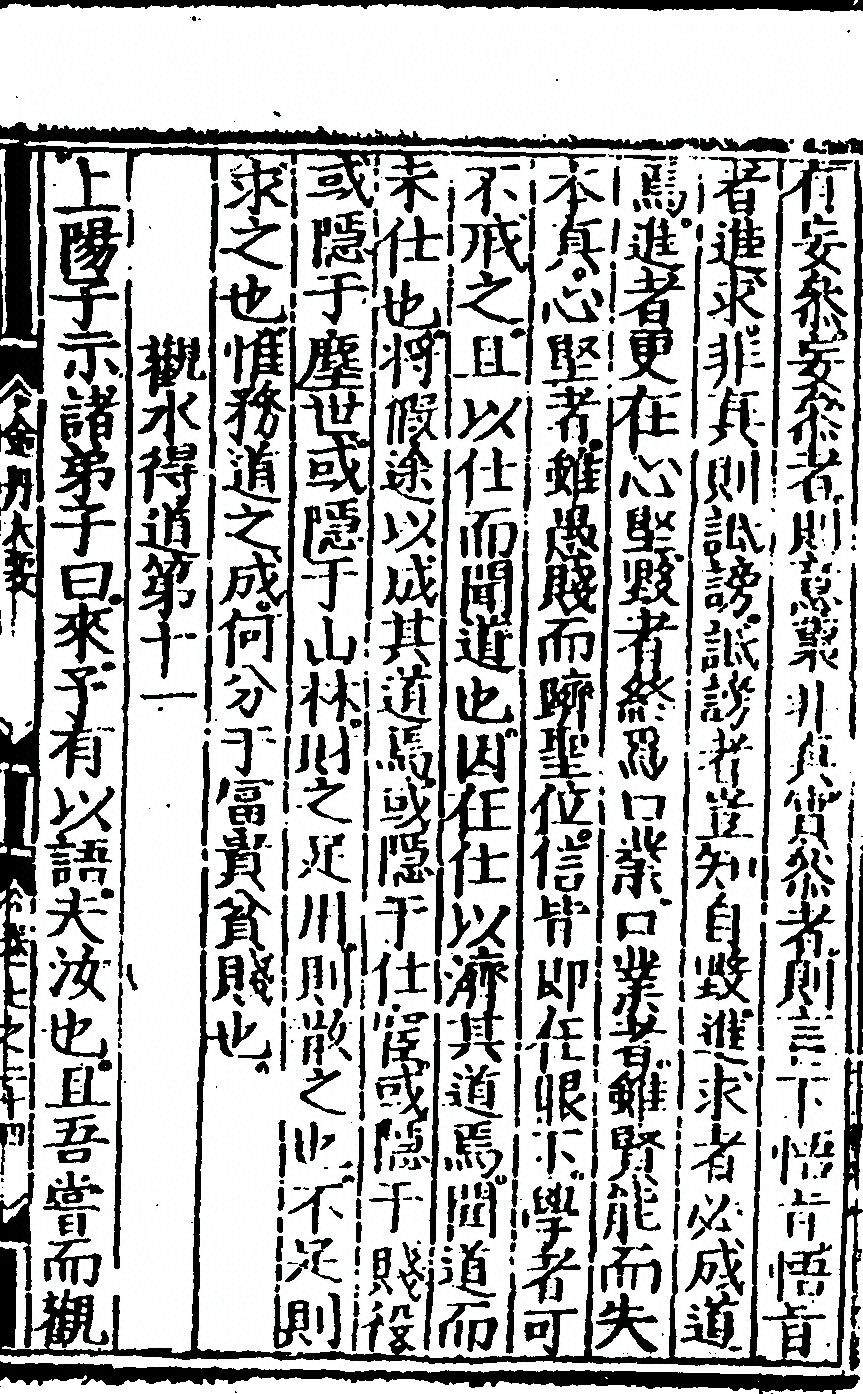 有妄叅妄叅者則惹業非真實叅者則言下悟旨悟旨
者進求非真則詆謗詆謗者豈知自毀進求者必成道
焉進者更在心堅毀者終爲口業口業者雖賢能而失
本真心堅者雖愚賤而躋聖位信皆即在眼下學者可
不戒之且以仕而聞道也因在仕以濟其道焉聞道而
未仕也將假途以成其道焉或隱于仕宦或隱于賤役
或隱于塵世或隱于山林財之足用則散之也不足則
求之也惟務道之成何分于富貴貧賤也
觀水得道第十一
上陽子示諸弟子曰來予有以語夫汝也且吾嘗而觀
金丹大要